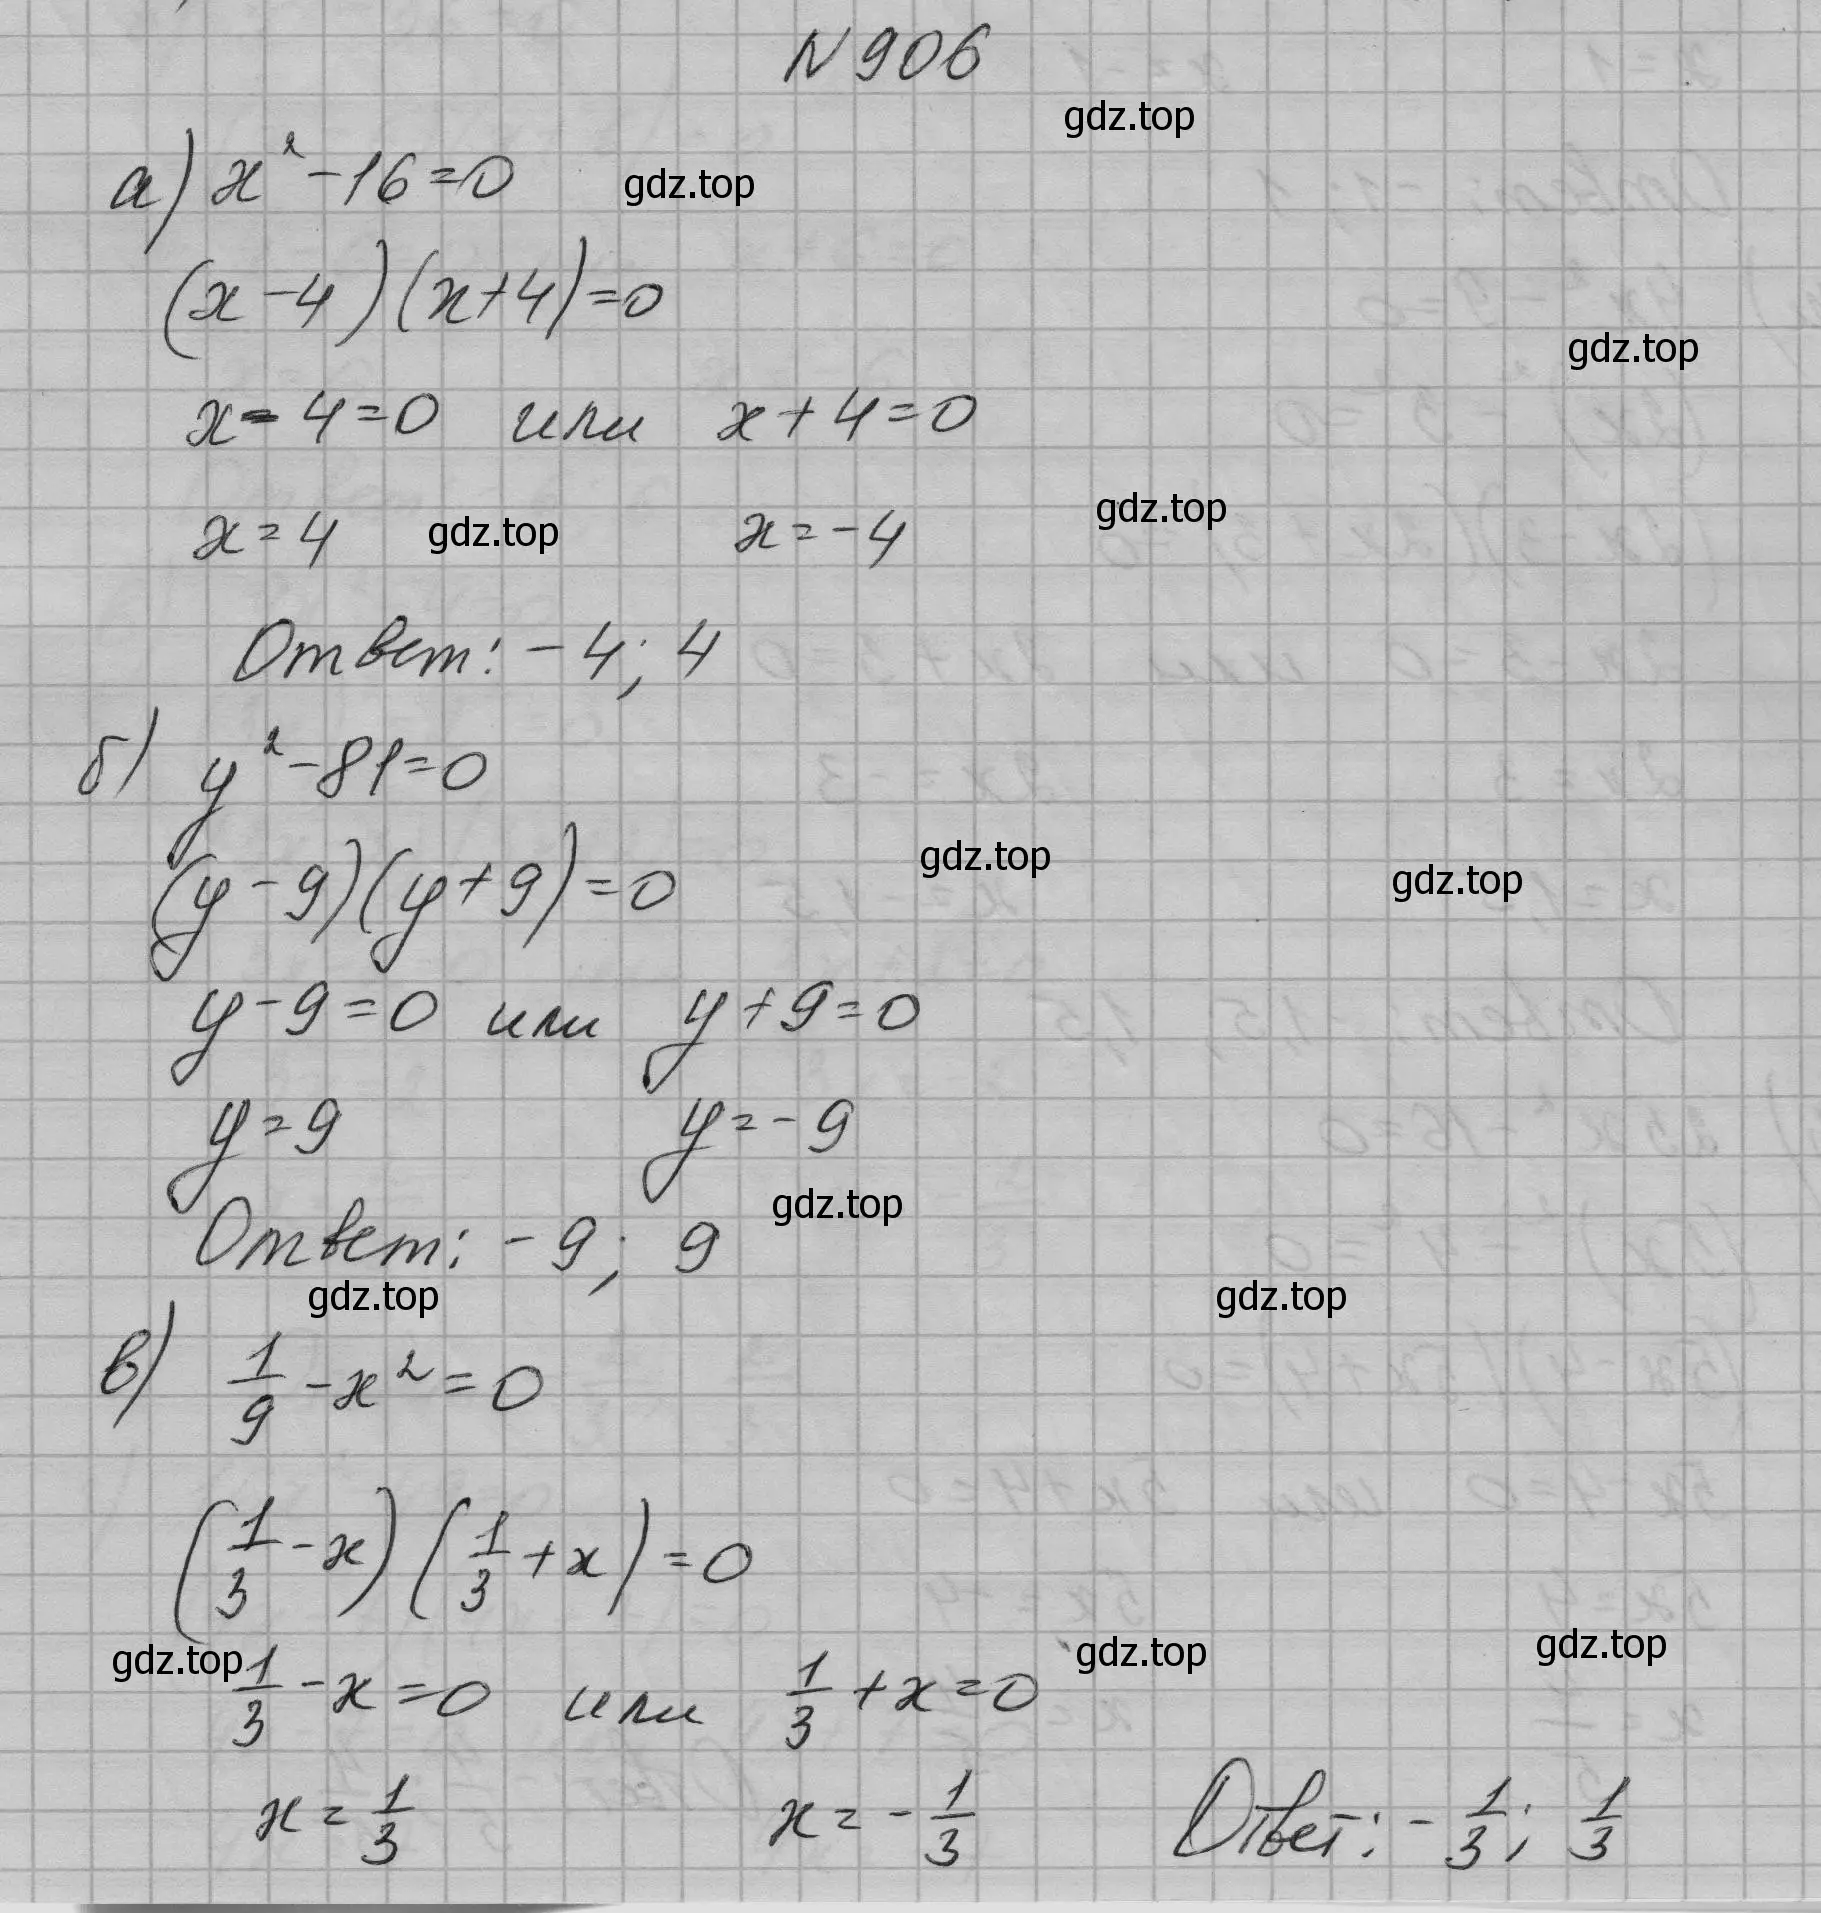 N 906
gdz.top
а) x² - 16 = 0 gdz.top
(x - 4)(x + 4) = 0
gdz.top
x - 4 = 0 или x + 4 = 0
x = 4 gdz.top x = -4 gdz.top
Ответ: -4; 4
б) y² - 81 = 0
(y - 9)(y + 9) = 0 gdz.top gdz.top
y - 9 = 0 или y + 9 = 0
y = 9 y = -9
gdz.top
Ответ: -9; 9
gdz.top gdz.top
в) 1/9 - x² = 0
(1/3 - x)(1/3 + x) = 0
gdz.top gdz.top gdz.top
1/3 - x = 0 или 1/3 + x = 0
x = 1/3 x = -1/3 Ответ: -1/3; 1/3